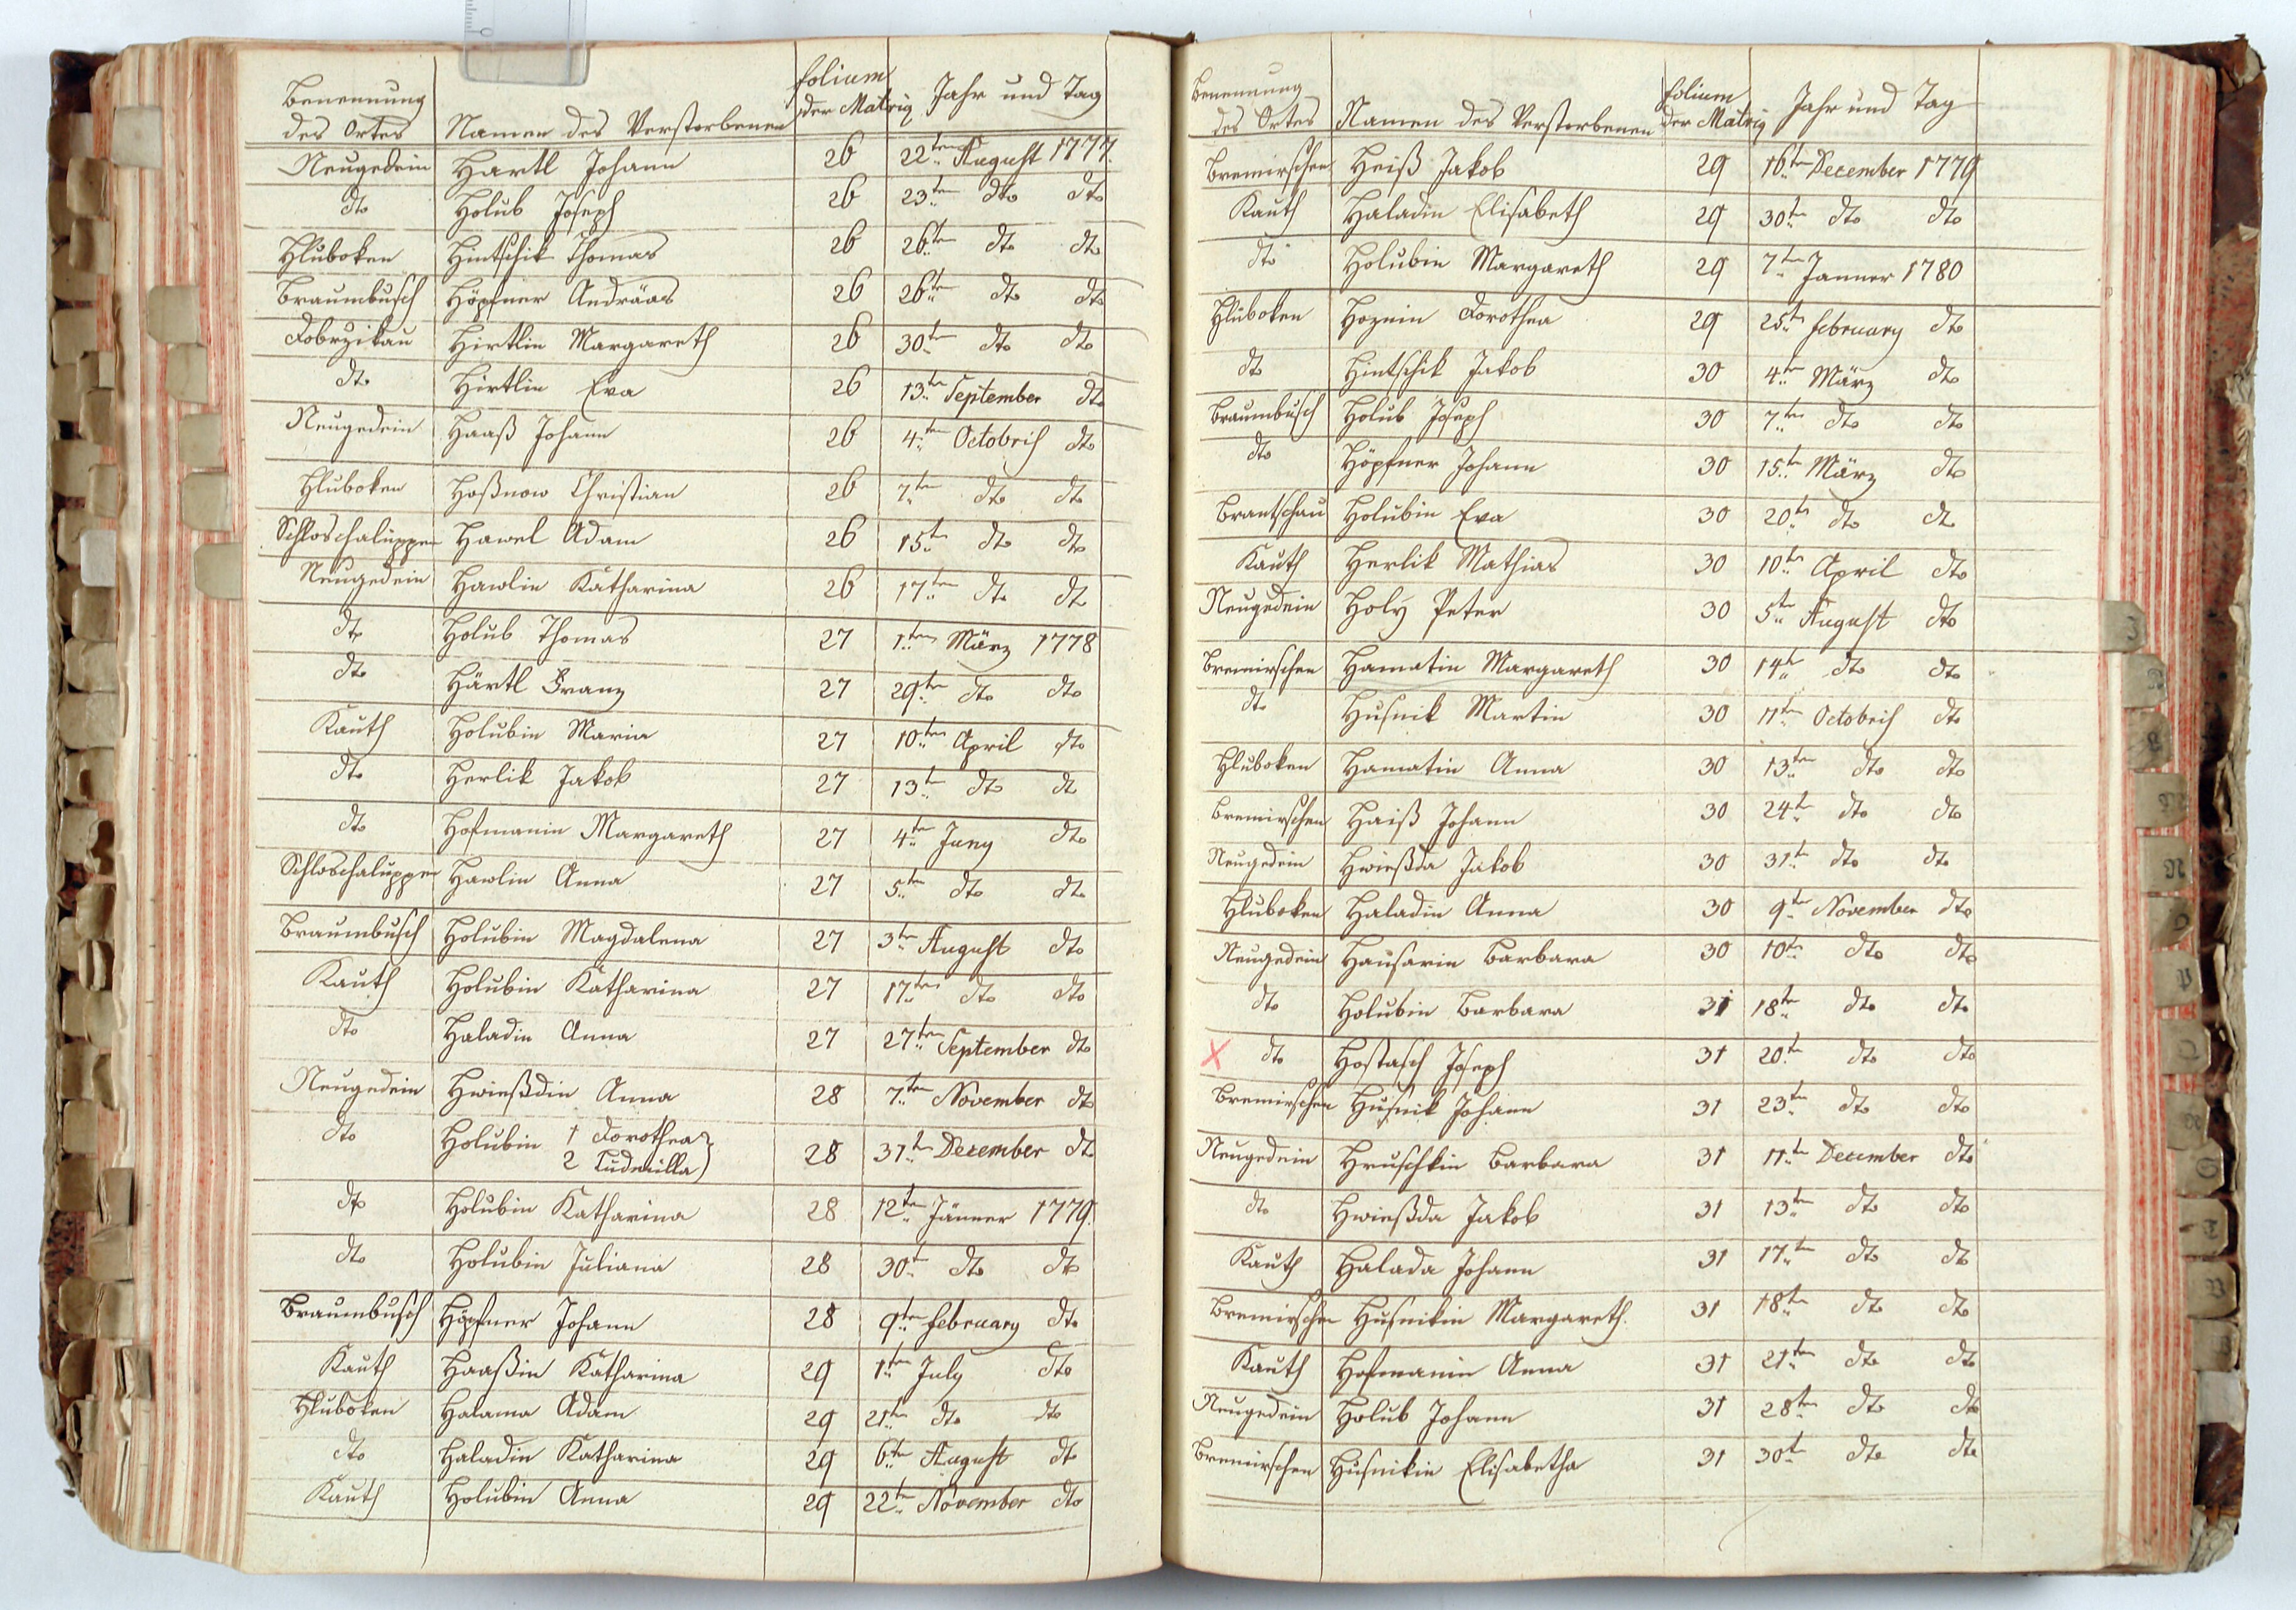 Benennung des Ortes | Namen des Verstorbenen | folium der Matrig | Jahr und Tag
Neugedein | Hartl Johann | 26 | 22ten August 1777.
dto | Holub Joseph | 26 | 23ten dto dto
Hluboken | Hintschik Thomas | 26 | 26ten dto dto
Braumbusch | Höpfner Andräas | 26 | 26ten dto dto
Dobrzikau | Hirtlin Margareth | 26 | 30ten dto dto
dto | Hirtlin Eva | 26 | 13ten September dto
Neugedein | Haaß Johann | 26 | 4ten Octobris dto
Hluboken | Hoßnow Christian | 26 | 7ten dto dto
Schloschaluppen | Hawel Adam | 26 | 15ten dto dto
Neugedein | Hawlin Katharina | 26 | 17ten dto dto
dto | Holub Thomas | 27 | 1ten März 1778
dto | Härtl Franz | 27 | 29ten dto dto
Kauth | Holubin Maria | 27 | 10ten April dto
dto | Herlik Jakob | 27 | 13ten dto dto
dto | Hofmanin Margareth | 27 | 4ten Juny dto
Schloschaluppen | Hawlin Anna | 27 | 5ten dto dto
Braumbusch | Holubin Magdalena | 27 | 3ten August dto
Kauth | Holubin Katharina | 27 | 17ten dto dto
dto | Haladin Anna | 27 | 27ten September dto
Neugedein | Hwießdin Anna | 28 | 7ten November dto
dto | Holubin 1 Dorothea 2 Ludmilla | 28 | 31ten December dto
dto | Holubin Katharina | 28 | 12ten Jänner 1779.
dto | Holubin Juliana | 28 | 30ten dto dto
Braumbusch | Höpfner Johann | 28 | 9ten february dto
Kauth | Haaßin Katharina | 29 | 1ten July dto
Hluboken | Halama Adam | 29 | 21ten dto dto
dto | Haladin Katharina | 29 | 6ten August dto
Kauth | Holubin Anna | 29 | 22ten November dto
Benennung des Ortes | Namen des Verstorbenen | folium der Matrig | Jahr und Tag
Bremirschen | Heiß Jakob | 29 | 16ten December 1779
Kauth | Haladin Elisabeth | 29 | 30ten dto dto
dto | Holubin Margareth | 29 | 7ten Janner 1780
Hluboken | Hoznin Dorothea | 29 | 25ten february dto
dto | Hintschik Jakob | 30 | 4ten März dto
Braumbusch | Holub Joseph | 30 | 7ten dto dto
dto | Höpfner Johann | 30 | 15ten März dto
Brantschau | Holubin Eva | 30 | 20ten dto dto
Kauth | Herlik Mathias | 30 | 10ten April dto
Neugedein | Holy Peter | 30 | 5ten August dto
Bremirschen | Hamatin Margareth | 30 | 14ten dto dto
dto | Husnik Martin | 30 | 11ten Octobris dto
Hluboken | Hamatin Anna | 30 | 13ten dto dto
Bremirschen | Haiß Johann | 30 | 24ten dto dto
Neugedein | Hwießda Jakob | 30 | 31ten dto dto
Hluboken | Haladin Anna | 30 | 9ten November dto
Neugedein | Hausarin Barbara | 30 | 10ten dto dto
dto | Holubin Barbara | 31 | 18ten dto dto
X dto | Hostasch Joseph | 31 | 20ten dto dto
Bremirschen | Husnik Johann | 31 | 23ten dto dto
Neugedein | Hruschkin Barbara | 31 | 11ten December dto
dto | Hwießda Jakob | 31 | 13ten dto dto
Kauth | Halada Johann | 31 | 17ten dto dto
Bremirschen | Husnikin Margareth. | 31 | 18ten dto dto
Kauth | Hofmanin Anna | 31 | 21ten dto dto
Neugedein | Holub Johann | 31 | 28ten dto dto
Bremirschen | Husnikin Elisabetha | 31 | 30ten dto dto